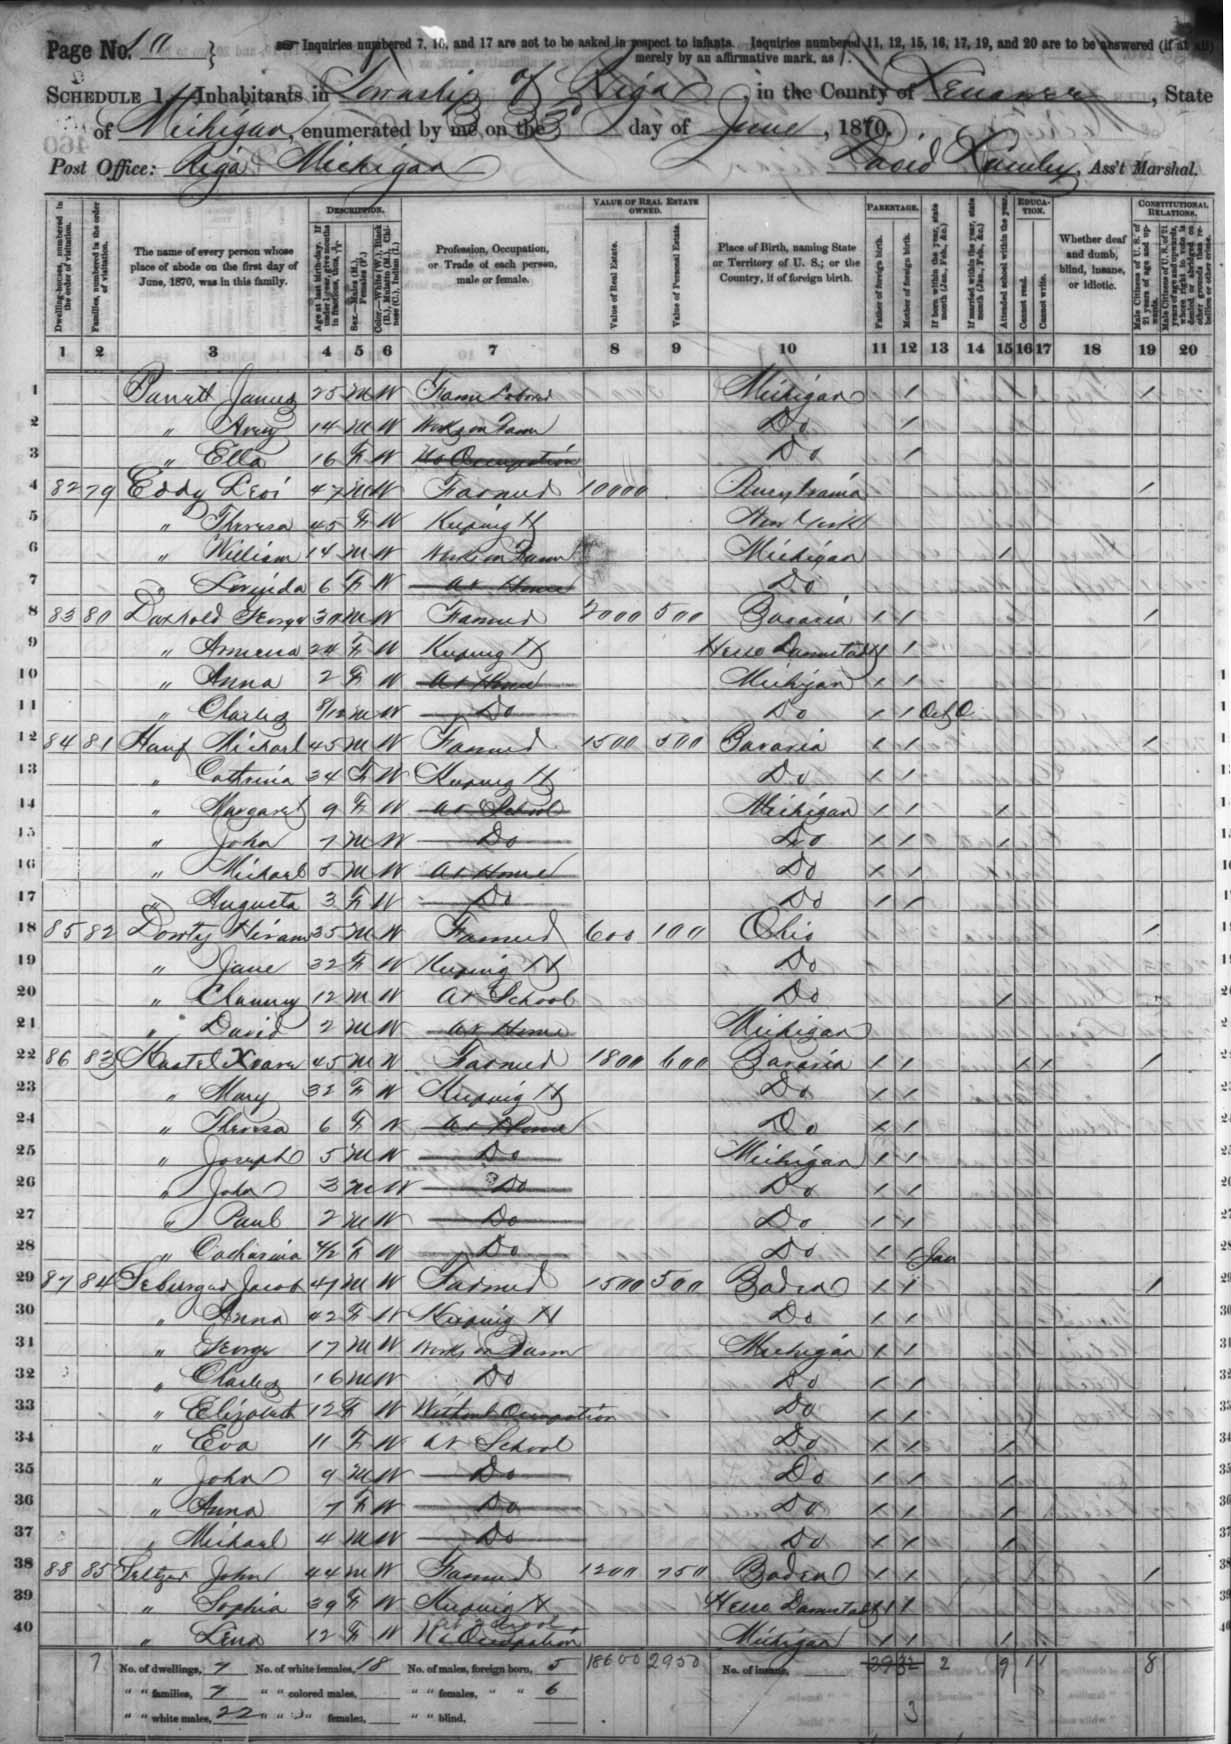 Page No. 10 } Inquiries numbered 7, 16, and 17 are not to be asked in respect to infants. Inquiries numbered 11, 12, 15, 16, 17, 19, and 20 are to be answered (if at all)
merely by an affirmative mark, as /.
SCHEDULE 1.—Inhabitants in Township of Riga, in the County of Lenawee, State
of Michigan, enumerated by me on the 3d day of June, 1870.
Post Office: Riga Michigan David Ass't Marshal.
Dwelling-houses, numbered in the order of visitation.
Families, numbered in the order of visitation.
The name of every person whose place of abode on the first day of June, 1870, was in this family.
DESCRIPTION.
Age at last birth-day. If under 1 year, give months in fractions, thus,
Sex.—Males (M.), Females (F.)
Color.—White (W.), Black (B.), Mulatto (M.), Chinese (C.), Indian (I.)
Profession, Occupation, or Trade of each person, male or female.
VALUE OF REAL ESTATE OWNED.
Value of Real Estate.
Value of Personal Estate.
Place of Birth, naming State or Territory of U. S.; or the Country, if of foreign birth.
PARENTAGE.
Father of foreign birth.
Mother of foreign birth.
If born within the year, state month (Jan., Feb., &c.)
If married within the year, state month (Jan., Feb., &c.)
Attended school within the year.
EDUCATION.
Cannot read.
Cannot write.
Whether deaf and dumb, blind, insane, or idiotic.
CONSTITUTIONAL RELATIONS.
Male Citizens of U. S. of 21 years of age and upwards.
Male Citizens of U. S. of 21 years of age and upwards, whose right to vote is denied or abridged on other grounds than rebellion or other crime.
1 2 3 4 5 6 7 8 9 10 11 12 13 14 15 16 17 18 19 20
1 James 25 M W Farm Laborer Michigan / /
2 " Avery 14 M W Works on Farm Do /
3 " Ella 16 F W No Occupation Do /
4 82 79 Eddy Levi 47 M W Farmer 10000 Pensylvania /
5 " Theresa 45 F W Keeping H New York
6 " William 14 M W Works on Farm Michigan /
7 " Lovinda 6 F W At Home Do
8 83 80 George 30 M W Farmer 2000 500 Bavaria / / /
9 " 24 F W Keeping H Hesse Darmstadt / /
10 " Anna 2 F W At Home Michigan / /
11 " Charles M W Do Do / / Oct
12 84 81 Hauf Michael 45 M W Farmer 1500 500 Bavaria / / /
13 " 34 F W Keeping H Do / /
14 " Margaret 9 F W At School Michigan / / /
15 " John 7 M W Do Do / / /
16 " Michael 5 M W At Home Do / /
17 " Augusta 3 F W Do Do / /
18 85 82 Dowty Hiram 35 M W Farmer 600 100 Ohio /
19 " Jane 32 F W Keeping H Do
20 " 12 M W At School Do /
21 " David 2 M W At Home Michigan
22 86 83 45 M W Farmer 1800 600 Bavaria / / / / /
23 " Mary 32 F W Keeping H Do / /
24 " Theresa 6 F W At Home Do / /
25 " Joseph 5 M W Do Michigan / /
26 " John 3 M W Do Do / /
27 " Paul 2 M W Do Do / /
28 " F W Do Do / / Jan
29 87 84 Jacob 47 M W Farmer 1500 500 Baden / / /
30 " Anna 42 F W Keeping H Do / /
31 " George 17 M W Works on Farm Michigan / /
32 " Charles 16 M W Do Do / /
33 " Elizabeth 12 F W Without Occupation Do / /
34 " Eva 11 F W At School Do / / /
35 " John 9 M W Do Do / / /
36 " Anna 7 F W Do Do / / /
37 " Michael 4 M W Do Do / / /
38 88 85 Seltzer John 44 M W Farmer 1200 750 Baden / / /
39 " Sophia 39 F W Keeping H Hesse Darmstadt / /
40 " Lena 12 F W At School No Occupation Michigan / / /
7 No. of dwellings, 7 No. of white females, 18 No. of males, foreign born, 5 18600 2950 No. of insane, 29 32 2 9 1 1 8
" " families, 7 " " colored males, " " females, " " 6
" " white males, 22 " " " females, " " blind, 3